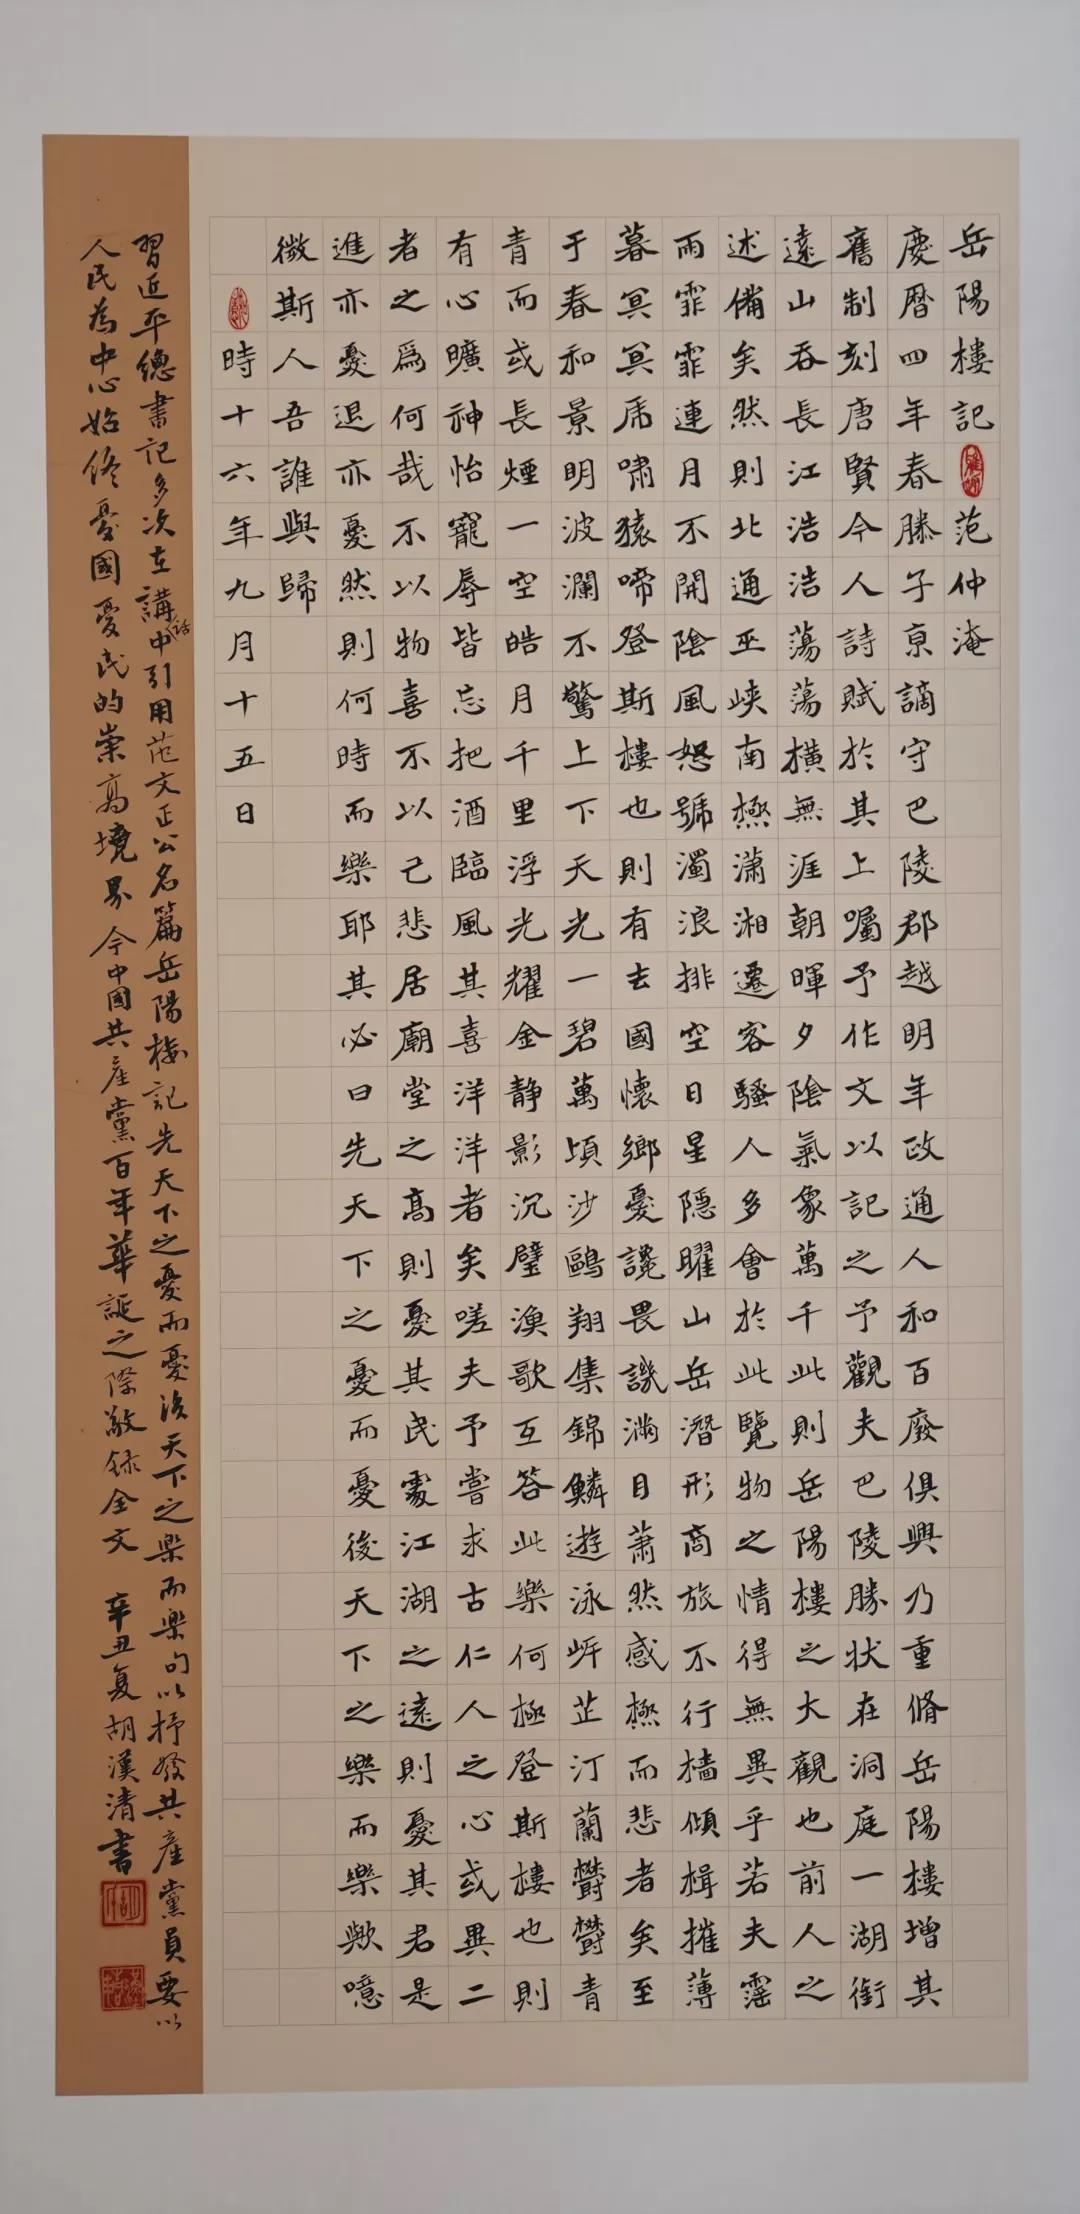 岳陽樓記 范仲淹
慶曆四年春滕子京謫守巴陵郡越明年政通人和百廢俱興乃重脩岳陽樓增其
舊制刻唐賢今人詩賦於其上囑予作文以記之予觀夫巴陵勝狀在洞庭一湖銜
遠山吞長江浩浩蕩蕩橫無涯朝暉夕陰氣象萬千此則岳陽樓之大觀也前人之
述備矣然則北通巫峽南極瀟湘遷客騷人多會於此覽物之情得無異乎若夫霪
雨霏霏連月不開陰風怒號濁浪排空日星隱曜山岳潛形商旅不行檣傾楫摧薄
暮冥冥虎嘯猿啼登斯樓也則有去國懷鄉憂讒畏譏滿目蕭然感極而悲者矣至
于春和景明波瀾不驚上下天光一碧萬頃沙鷗翔集錦鱗遊泳岸芷汀蘭鬱鬱青
青而或長煙一空皓月千里浮光耀金静影沉璧漁歌互答此樂何極登斯樓也則
有心曠神怡寵辱皆忘把酒臨風其喜洋洋者矣嗟夫予嘗求古仁人之心或異二
者之爲何哉不以物喜不以己悲居廟堂之高則憂其民處江湖之遠則憂其君是
進亦憂退亦憂然則何時而樂耶其必曰先天下之憂而憂後天下之樂而樂歟噫
微斯人吾誰與歸
時十六年九月十五日
習近平總書記多次在講話中引用范文正公名篇岳陽樓記先天下之憂而憂後天下之樂而樂句以抒發共產黨員要以
人民為中心始終憂國憂民的崇高境界今中國共產黨百年華誕之際敬錄全文 辛丑夏胡漢清書